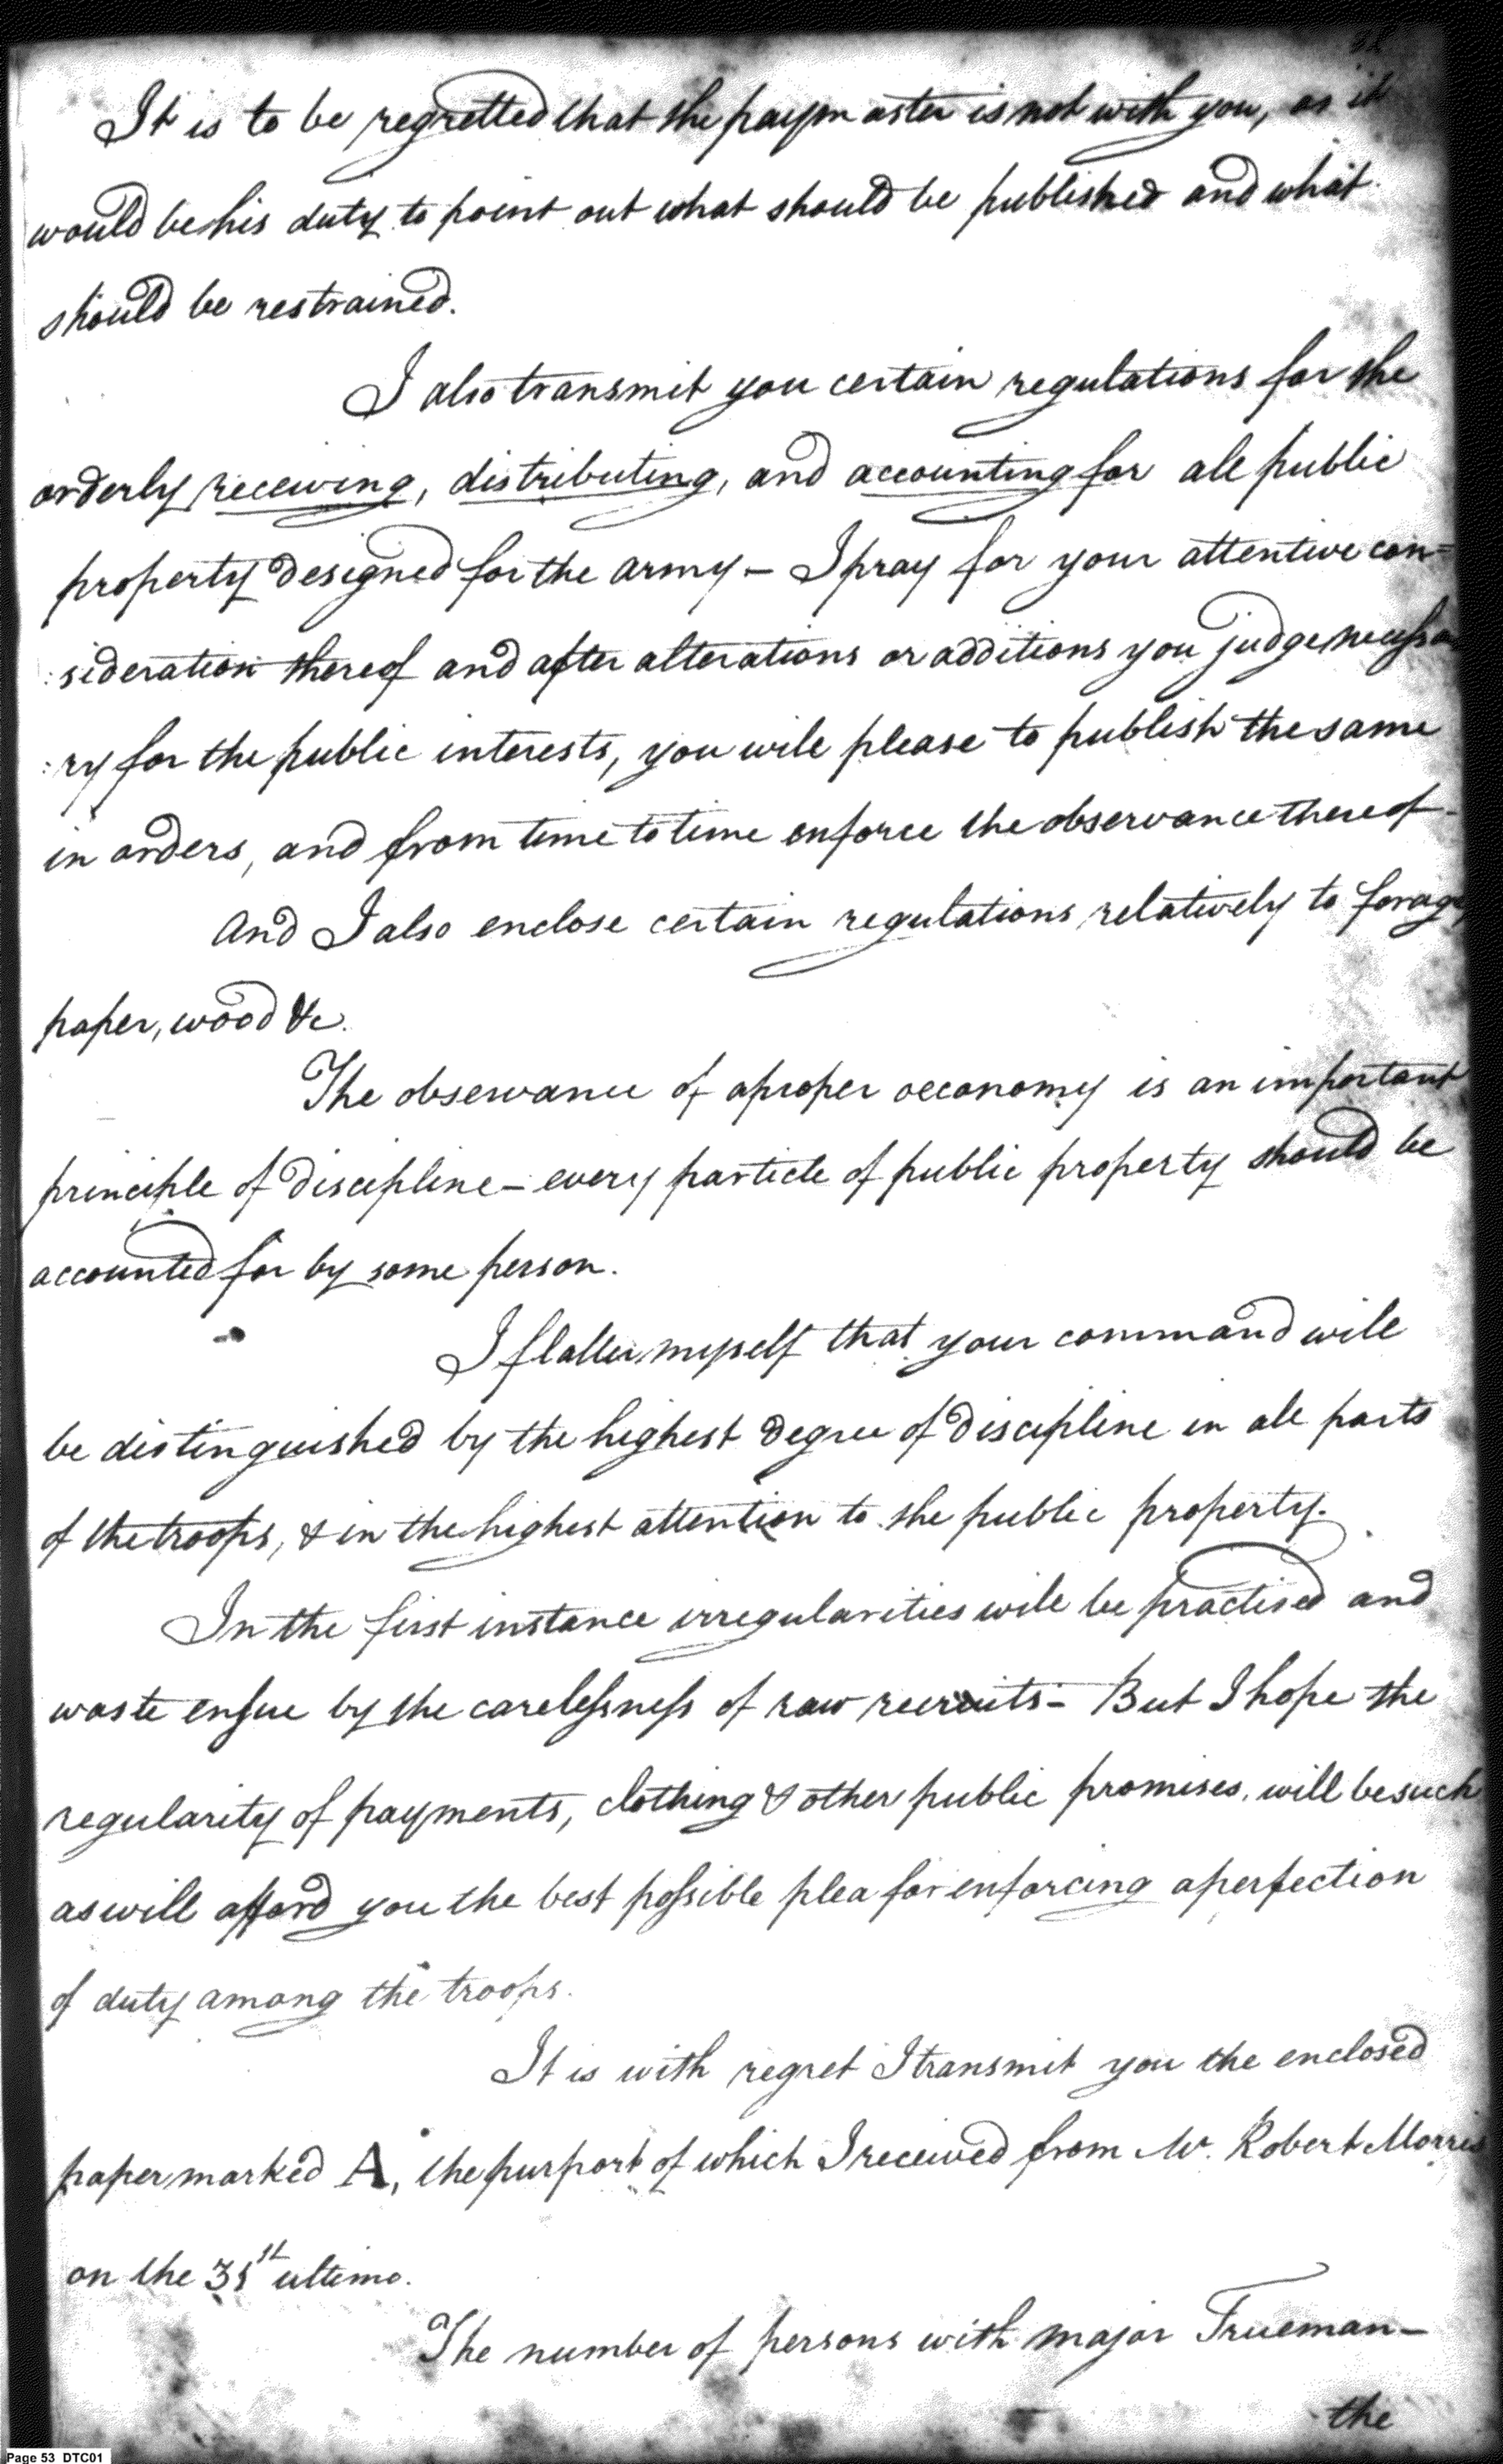 It is to be regretted that the paymaster is not with you, as it
would be his duty to point out what should be published and what
should be restrained.
I also transmit you certain regulations for the
orderly receiving, distributing, and accounting for all public
property designed for the army – I pray for your attentive con=
:sideration thereof and after alterations or additions you judge necessa
:ry for the public interests, you will please to publish the same
in orders, and from time to time enforce the observance thereof –
And I also enclose certain regulations relatively to forage,
paper, wood &c.
The observance of a proper oeconomy is an important
principle of discipline – every particle of public property should be
accounted for by some person.
I flatter myself that your command will
be distinguished by the highest degree of discipline in all parts
of the troops, & in the highest attention to the public property.
In the first instance irregularities will be practised and
waste ensue by the carelessness of raw recruits – But I hope the
regularity of payments, clothing & other public promises, will be such
as will afford you the best possible plea for enforcing a perfection
of duty among the troops.
It is with regret I transmit you the enclosed
paper marked A, the purport of which I received from Mr. Robert Morris
on the 31st ultimo.
The number of persons with major Trueman –
the
Page 53 DTC01